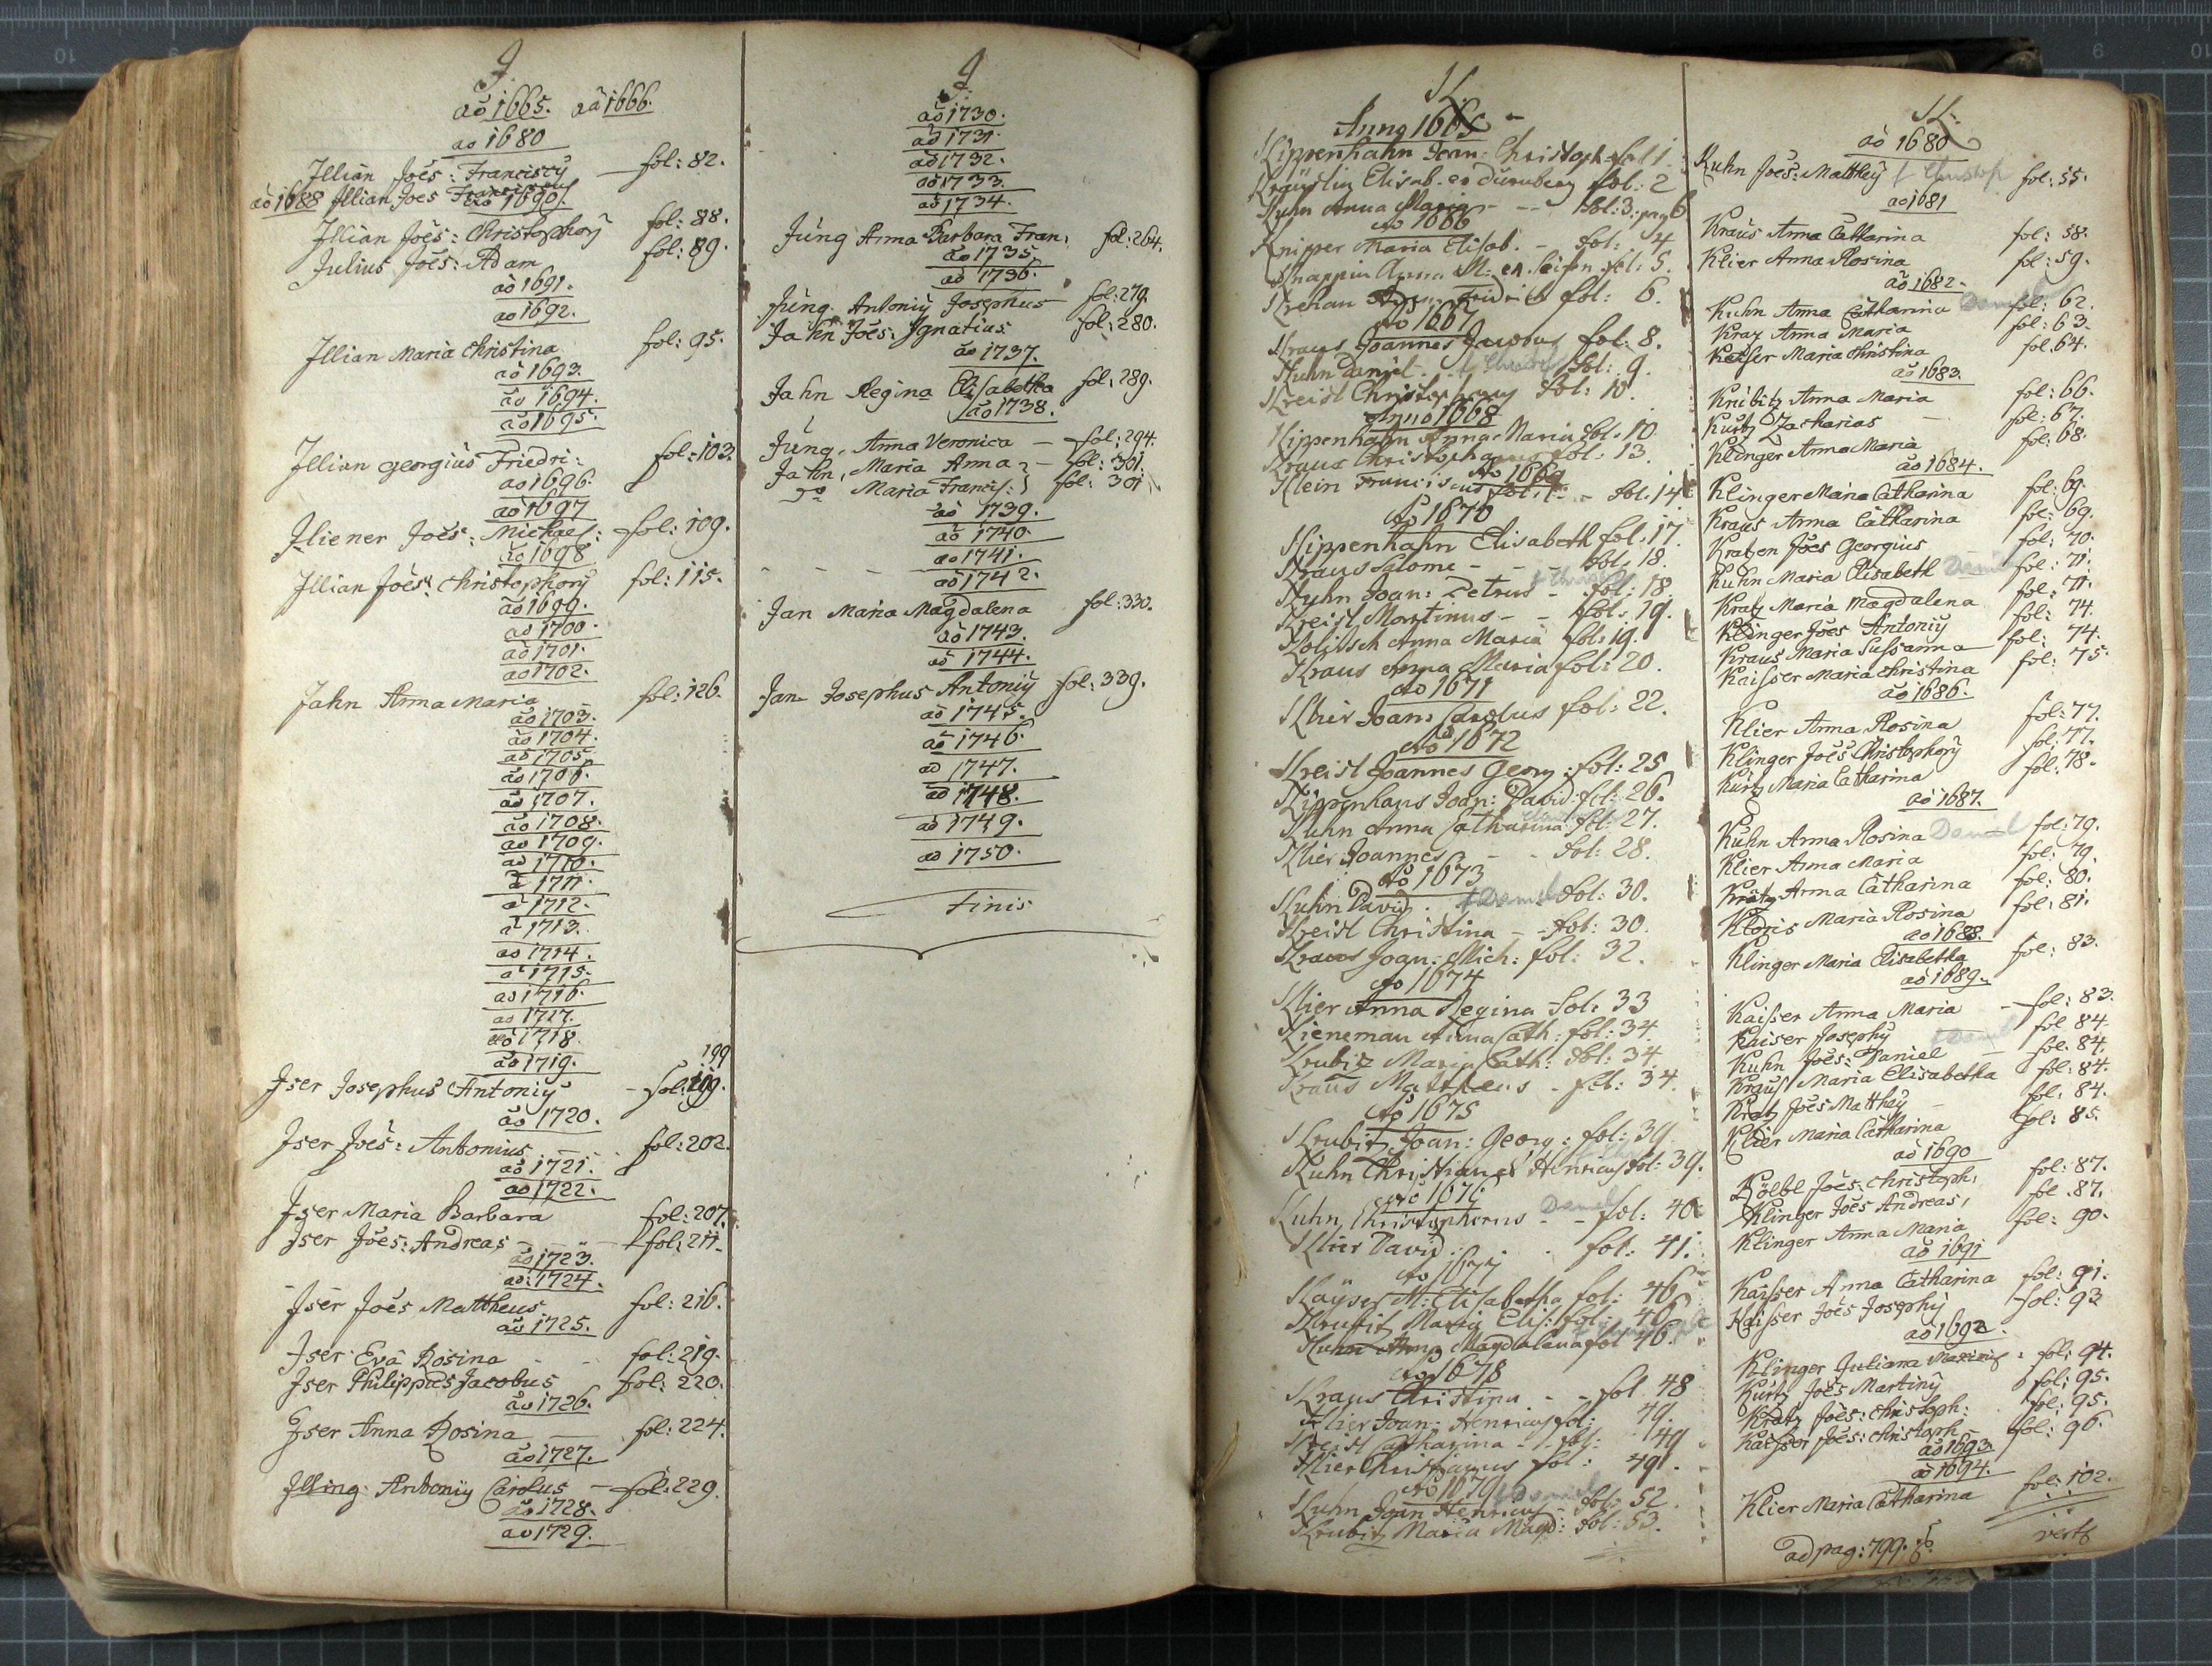 J.
aõ 1665. aõ 1666.
ao 1680
Illian Joẽs: Franciscy — fol: 82.
aõ 1688 Illian Joes Franciscus
aõ 1690
Illian Joẽs: Christophory fol: 88.
Julius Joẽs: Adam fol: 89.
aõ 1691.
ao 1692.
Illian Maria Christina fol: 95.
aõ 1693.
aõ 1694.
aõ 1695.
Illian georgius Friedri: fol: 103.
ao 1696.
aõ 1697
Iliener Joẽs: Michael: — fol: 109.
aõ 1698
Illian Joẽs: Christophory fol: 115.
aõ 1699.
aõ 1700.
aõ 1701.
ao 1702.
Jahn Anna Maria fol: 126.
aõ 1703.
ao 1704.
aõ 1705.
aõ 1706.
aõ 1707.
aõ 1708.
ao 1709.
ao 1710.
a 1711.
a 1712.
a 1713.
ao 1714.
a 1715.
ao 1716.
ao 1717.
ao 1718.
aõ 1719.
199
Iser Josephus Antoniy — fol: 199.
aõ 1720.
Iser Joẽs: Antonius fol: 202.
aõ 1721.
ao 1722.
Iser Maria Barbara fol: 207.
Iser Joẽs: Andreas — fol: 211.
aõ 1723.
ao: 1724.
Iser Joẽs Mattheus fol: 216.
aõ 1725.
Iser Eva Rosina fol: 219.
Iser Philippus Jacobus fol: 220.
aõ 1726.
Iser Anna Rosina — fol: 224.
aõ 1727.
Illing Antoniy Carolus — fol: 229.
aõ 1728.
ao 1729.
J.
aõ 1730.
aõ 1731.
aõ 1732.
aõ 1733.
aõ 1734.
Jung Anna Barbara Fran: fol: 264.
aõ 1735.
aõ 1736.
Jung Antoniy Josephus fol: 279.
Jahn Joẽs: Ignatius fol: 280.
aõ 1737.
Jahn Regina Elisabetha fol: 289.
aõ 1738.
Jung, Anna Veronica — fol: 294.
Jahn, Maria Anna — fol: 301.
Maria Francis: fol: 301.
aõ 1739.
aõ 1740.
ao 1741.
aõ 1742.
Jan Maria Magdalena fol: 330.
aõ 1743.
aõ 1744.
Jan Josephus Antoniy fol: 339.
aõ 1745.
aõ 1746.
ao 1747.
ao 1748.
aõ 1749.
ao 1750.
Finis
K.
Anno 1665
Kippenhahn Joan: Christoph fol 1.
Elisab. fol: 2
Kuhn Anna Maria - -- fol: 3: pag 6
Aõ 1666
Knipper Maria Elisab. - fol: 4
Knappin Anna M: fol: 5.
fol: 6.
Aõ 1667
Kraus Joannes Jacobus fol: 8.
Kuhn Daniel - fol: 9.
Kreisl Christophorus fol: 10.
Anno 1668
Kippenhahn Anna Maria fol: 10
Kraus Christophorus fol: 13.
Aõ 1669
Klein Franciscus - fol: 14
Aõ 1670
Kippenhahn Elisabeth fol: 17.
Kraus Salome - - - fol: 18.
Kuhn Joan: Petrus - fol: 18.
Kreisl Martinus - - fol: 19.
Anna Maria fol: 19.
Kraus Anna Maria fol: 20.
Aõ 1671
Klier Joan: Carolus fol: 22.
Aõ 1672
Kreisl Joannes Georg: fol: 25
Kippenhans Joan: David: fol: 26.
Kuhn Anna Catharina fol: 27.
Klier Joannes - - fol: 28.
Aõ 1673
Kuhn David. Daniel fol: 30.
Kreisl Christina - - fol: 30.
Kraus Joan: Mich: fol: 32.
Aõ 1674
Klier Anna Regina fol: 33
Kieneman Anna Cath: fol: 34.
Krubiz Maria Cath: fol: 34
Kraus Mattheus - fol: 34.
Aõ 1675
Krubiz Joan: Georg: fol: 39
Kuhn Christianus Henricus fol: 39.
Aõ 1676
Kuhn Christophorus Daniel - fol: 40
Klier David. fol: 41.
Aõ 1677
Kayser M: Elisabetha fol: 46
Krubiz Maria Elis: fol: 46
Kuhn Anna Magdalena fol 46.
Aõ 1678
Kraus Christina - - fol 48
Klier Joan: Henricus fol: 49.
Kreisl Catharina - fol: 49
Klier Christianus fol: 49.
Aõ 1679
Kuhn Joan Henricus - fol: 52.
Krubiz Maria Magd: fol: 53.
K.
aõ 1680
Kuhn Joẽs: Matthey Christoph fol: 55.
ao 1681
Kraus Anna Catharina fol: 58.
Klier Anna Rosina fol: 59.
aõ 1682.
Kuhn Anna Catharina Daniel fol: 62.
Kraz Anna Maria fol: 63.
Keiser Maria Christina fol. 64.
aõ 1683.
Kribitz Anna Maria fol: 66.
Kurtz Zacharias — fol: 67.
Klinger Anna Maria fol: 68.
aõ 1684.
Klinger Maria Catharina fol: 69.
Kraus Anna Catharina fol: 69.
Kratzen Joẽs Georgius fol: 70.
Kuhn Maria Elisabeth Daniel fol: 71.
Kratz Maria Magdalena fol: 71.
Klinger Joẽs Antoniy fol: 74.
Kraus Maria Susanna fol: 74.
Kaisser Maria Christina fol: 75.
aõ 1686.
Klier Anna Rosina fol: 77.
Klinger Joẽs Christophory fol: 77.
Kurtz Maria Catharina fol: 78.
aõ 1687.
Kuhn Anna Rosina Daniel fol: 79.
Klier Anna Maria fol: 79.
Kratz Anna Catharina fol: 80.
Maria Rosina fol: 81.
ao 1688.
Klinger Maria Elisabetha fol: 83.
aõ 1689.
Kaisser Anna Maria — fol: 83.
Kaiser Josephy fol 84.
Kuhn Joẽs: Daniel — fol: 84.
Krauss Maria Elisabetha fol: 84.
Kratz Joẽs Matthey — fol: 84.
Klier Maria Catharina fol: 85.
aõ 1690
Kölbl Joẽs: Christoph: fol: 87.
Klinger Joẽs Andreas, fol. 87.
Klinger Anna Maria fol: 90.
aõ 1691
Kaisser Anna Catharina fol: 91.
Kaisser Joẽs Josephy fol: 93
ao 1692.
Klinger Juliana fol: 94.
Kurtz Joẽs Martiny fol: 95.
Kratz Joẽs: Christoph: fol: 95.
Kaisser Joẽs: Christoph fol: 96.
aõ 1693.
aõ 1694.
Klier Maria Catharina fol: 102.
ad pag: 799.